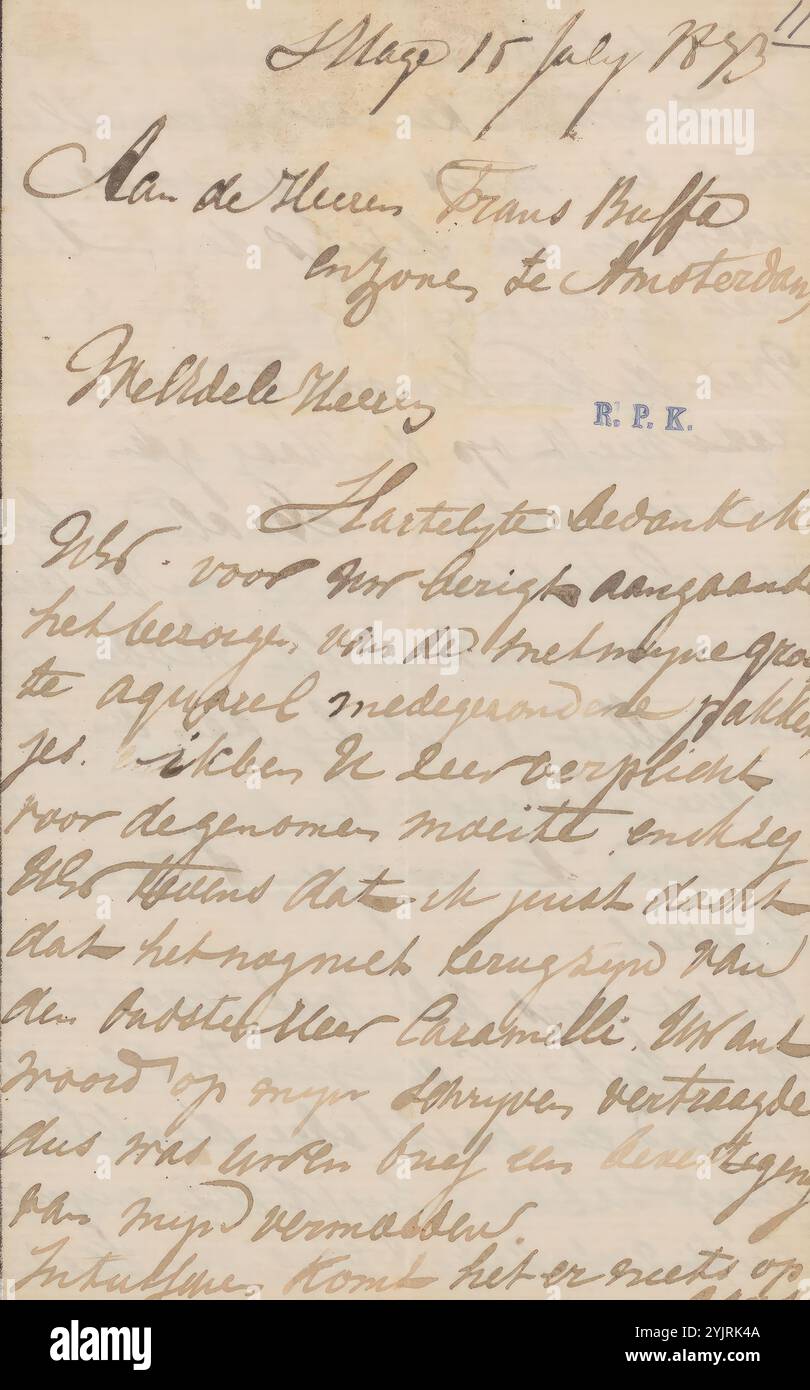 S'Hage 15 July 1873
11
Aan de Heeren Frans Buffa
en Zonen te Amsterdam,
WelEdele Heeren
R. P. K.
Hartelyke bedank ik
UEd. voor Uw berigt aangaande
het bezorgen van de met myne groo
te aquarel medegezondene pakket
jes. ik ben U zeer verplicht
voor de genomen moeite en ik zeg
UEd tevens dat ik juist dacht
dat het nog niet terugzyn van
den oudsten Heer Caramelli Uw ant
woord op myn schryven vertraagde
dus was uwen brief een bevestiging
van myn vermoeden.
Intusschen komt het er niets op
alamy
Image ID: 2YJRK4A
www.alamy.com